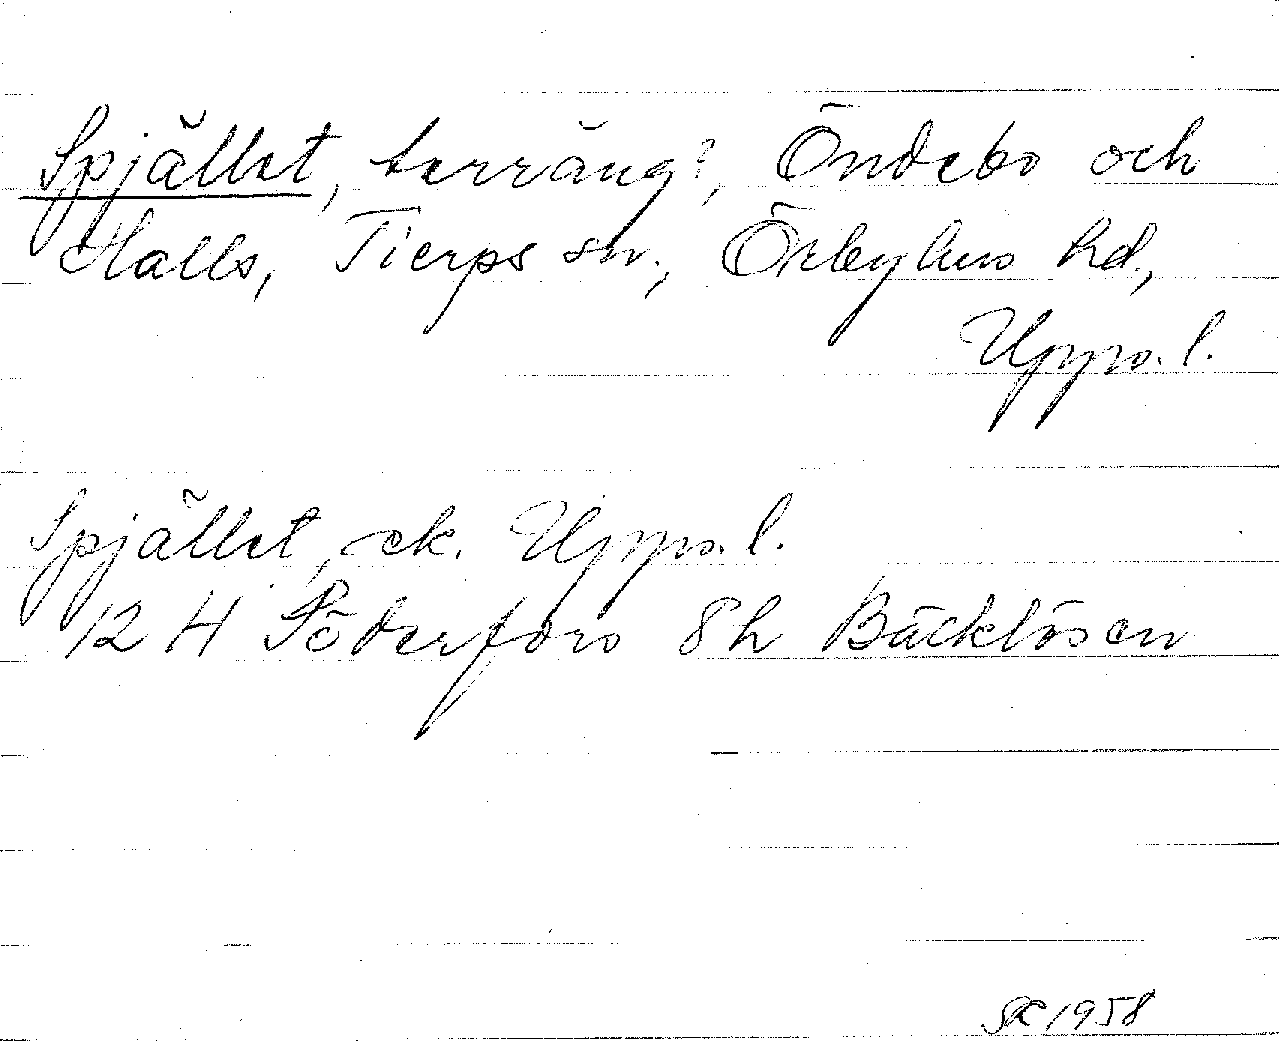 Spjället, terräng?, Öndebo och
Halls, Tierps sn., Örbyhus hd.,
Upps. l.
Spjället, ek. Upps. l.
12 H Söderfors 8h Bäcklösen
SK 1958